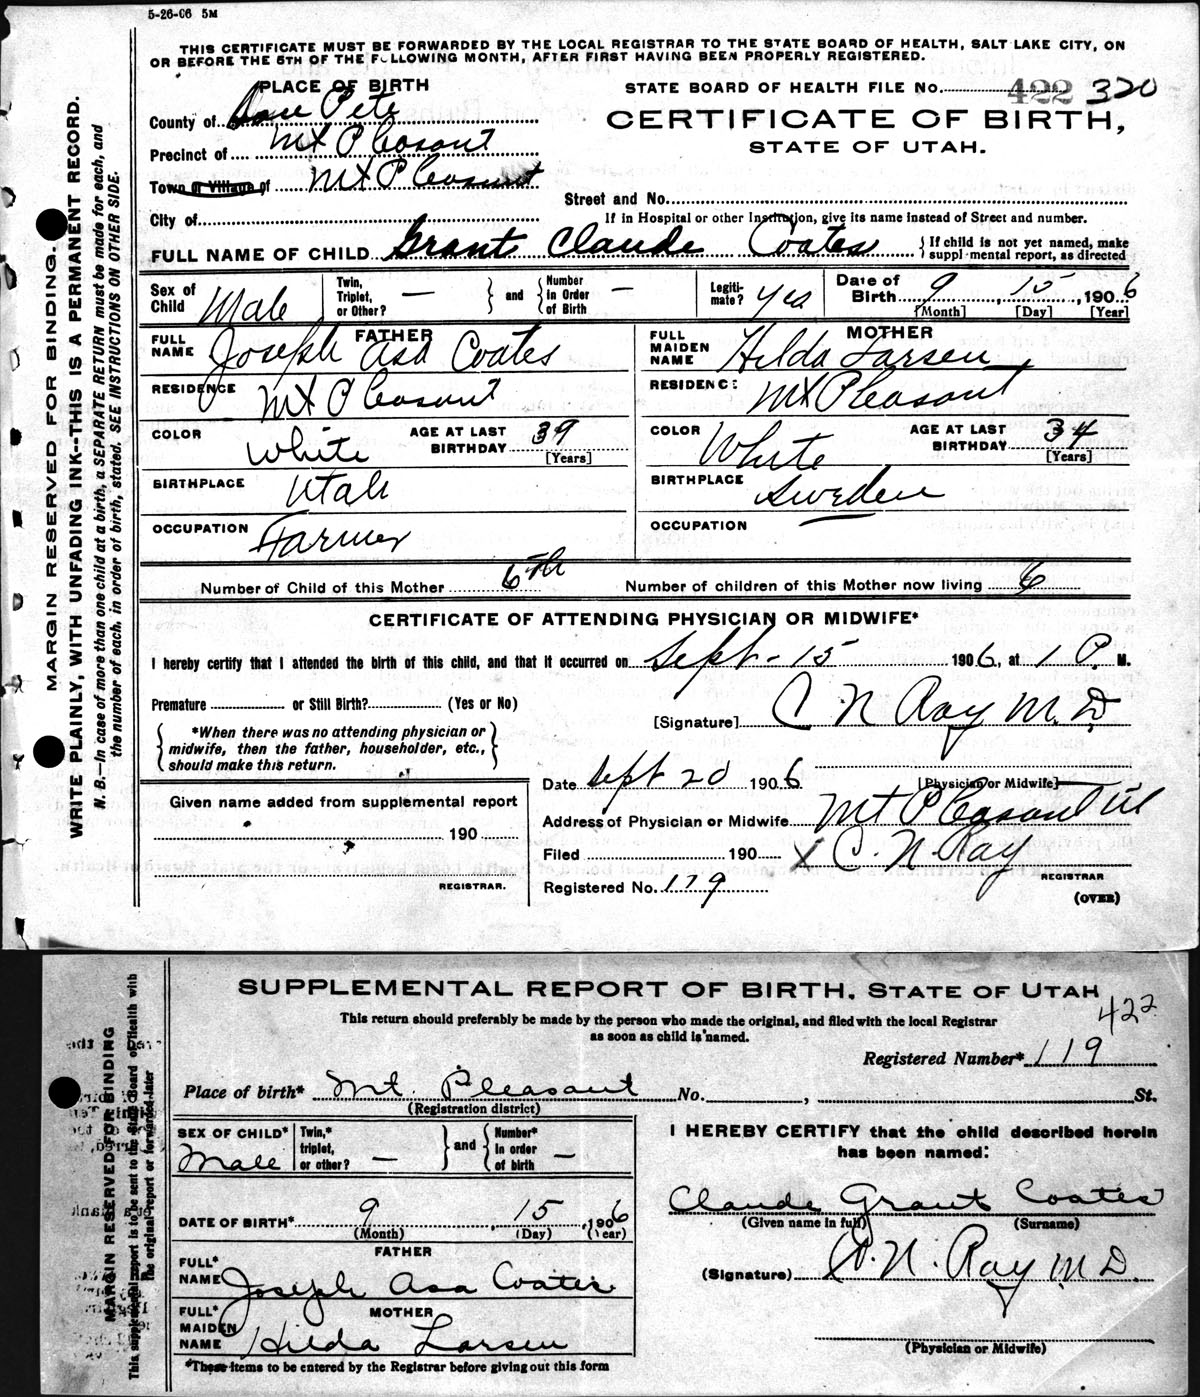 5-26-06 5M
THIS CERTIFICATE MUST BE FORWARDED BY THE LOCAL REGISTRAR TO THE STATE BOARD OF HEALTH, SALT LAKE CITY, ON
OR BEFORE THE 5TH OF THE FOLLOWING MONTH, AFTER FIRST HAVING BEEN PROPERLY REGISTERED.
MARGIN RESERVED FOR BINDING.
WRITE PLAINLY, WITH UNFADING INK--THIS IS A PERMANENT RECORD.
N. B.—In case of more than one child at a birth, a SEPARATE RETURN must be made for each, and
the number of each, in order of birth, stated. SEE INSTRUCTIONS ON OTHER SIDE.
PLACE OF BIRTH
County of San Pete
Precinct of Mt Pleasant
Town or Village of Mt Pleasant
City of
STATE BOARD OF HEALTH FILE No. 422 320
CERTIFICATE OF BIRTH,
STATE OF UTAH.
Street and No.
If in Hospital or other Institution, give its name instead of Street and number.
FULL NAME OF CHILD Grant Claude Coates { If child is not yet named, make
suppl-mental report, as directed
Sex of Child Male
Twin, Triplet, or Other? —
and
Number in Order of Birth —
Legiti-mate? yes
Date of Birth 9, 15, 1906
[Month] [Day] [Year]
FATHER
FULL NAME Joseph Asa Coates
RESIDENCE Mt Pleasant
COLOR White AGE AT LAST BIRTHDAY 39
[Years]
BIRTHPLACE Utah
OCCUPATION Farmer
MOTHER
FULL MAIDEN NAME Hilda Larsen
RESIDENCE Mt Pleasant
COLOR White AGE AT LAST BIRTHDAY 34
[Years]
BIRTHPLACE Sweden
OCCUPATION
Number of Child of this Mother 6th Number of children of this Mother now living 6
CERTIFICATE OF ATTENDING PHYSICIAN OR MIDWIFE*
I hereby certify that I attended the birth of this child, and that it occurred on Sept - 15 1906, at 1 P. M.
Premature or Still Birth? (Yes or No)
{ *When there was no attending physician or
midwife, then the father, householder, etc.,
should make this return. }
[Signature] C N Ray M.D.
[Physician or Midwife]
Given name added from supplemental report
190
REGISTRAR.
Date Sept 20 1906
Address of Physician or Midwife Mt Pleasant Ut
Filed 190 X C. N. Ray
REGISTRAR
Registered No. 119
(OVER)
MARGIN RESERVED FOR BINDING
This supplemental report is to be sent to the State Board of Health with
the original report or forwarded later
SUPPLEMENTAL REPORT OF BIRTH, STATE OF UTAH
422
This return should preferably be made by the person who made the original, and filed with the local Registrar
as soon as child is named.
Registered Number* 119
Place of birth* Mt. Pleasant No. , St.
(Registration district)
SEX OF CHILD* Male
Twin,* triplet, or other? —
and
Number* In order of birth —
DATE OF BIRTH* 9, 15, 1906
(Month) (Day) (Year)
FATHER
FULL* NAME Joseph Asa Coates
MOTHER
FULL* MAIDEN NAME Hilda Larsen
*These items to be entered by the Registrar before giving out this form
I HEREBY CERTIFY that the child described herein
has been named:
Claude Grant Coates
(Given name in full) (Surname)
(Signature) C. N. Ray M D.
(Physician or Midwife)